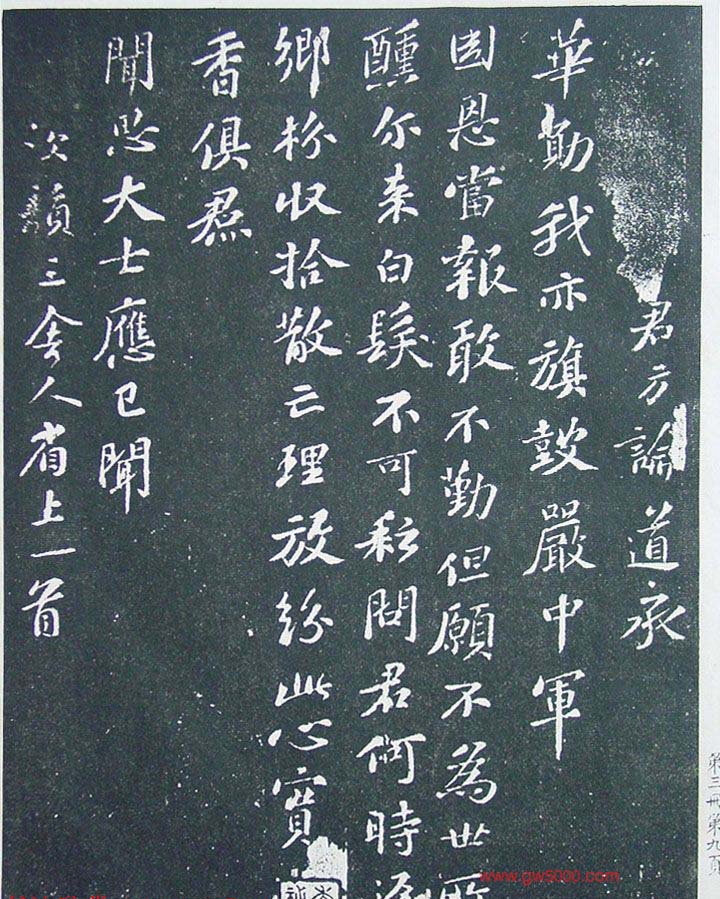 君方論道承
華勛我亦旗鼓嚴中軍
國恩當報敢不勤但願不為世所
醺尔来白髮不可耘問君何時返
鄉枌収拾散亡理放紛此心實
香俱焄
聞思大士應已聞
次韻三舍人省上一首
第三冊第九頁
www.gw5000.com